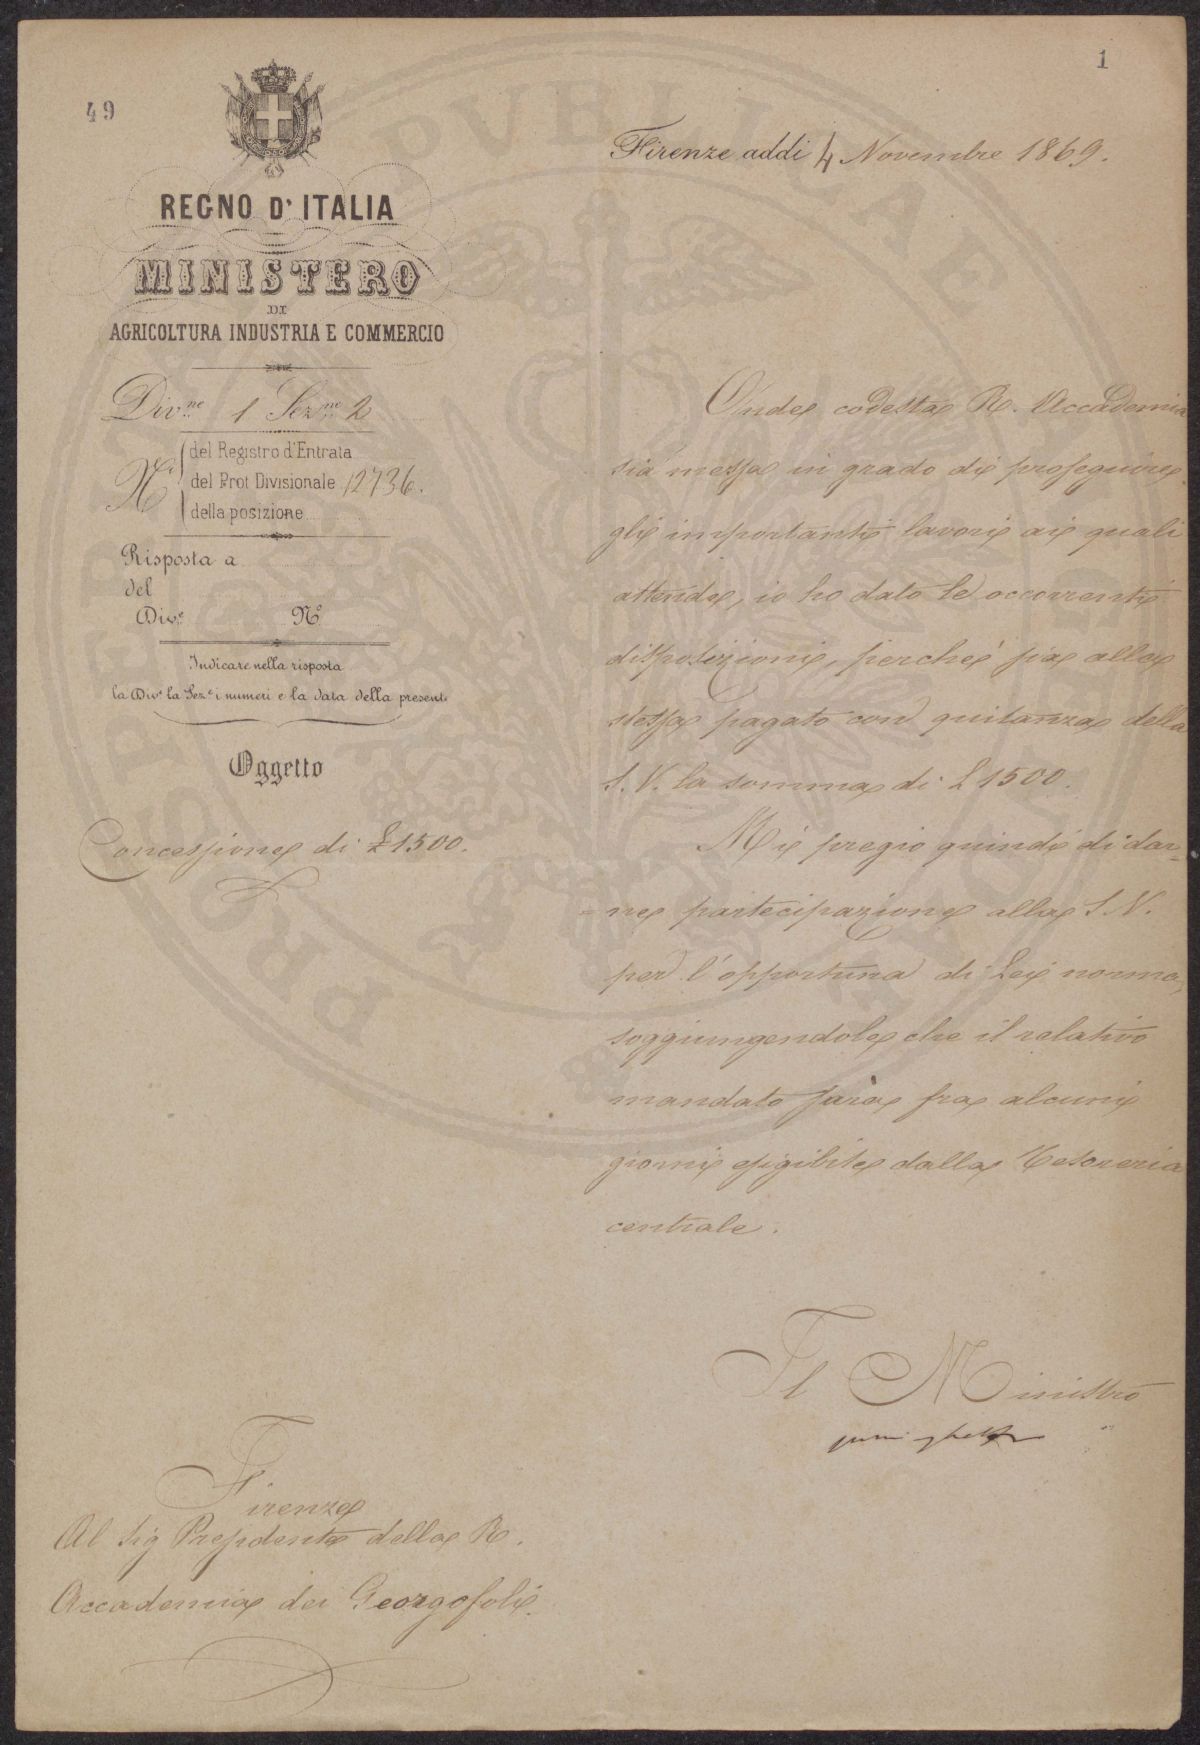 49
1
REGNO D'ITALIA
MINISTERO
DI
AGRICOLTURA INDUSTRIA E COMMERCIO
Div.ne 1 Sez.ne 2
N.i
del Registro d'Entrata
del Prot Divisionale 12736.
della posizione
Risposta a
del
Div.e N.o
Indicare nella risposta
la Div.e la Sez.e i numeri e la data della present.
Oggetto
Concessione di £ 1500.
Firenze addi 4 Novembre 1869.
Onde codesta R. Accademia
sia messa in grado di proseguire
gli importanti lavori ai quali
attende, io ho dato le occorrenti
disposizioni, perchè sia alla
stessa pagato con quitanza della
S. V. la somma di £ 1500.
Mi pregio quindi di dar-
ne partecipazione alla S. V.
per l'opportuna di Lei norma,
soggiungendole che il relativo
mandato sarà fra alcuni
giorni esigibile dalla Tesoreria
centrale.
Il Ministro
Firenze
Al Sig Presidente della R.
Accademia dei Georgofoli
PUBLICAE
PROSPERITATIS